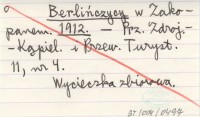 Berlińczycy w Zako-
panem. 1912. — Prz. Zdroj.-
-Kąpiel. i Przew. Turyst.
11, nr 4.
Wycieczka zbiorowa.